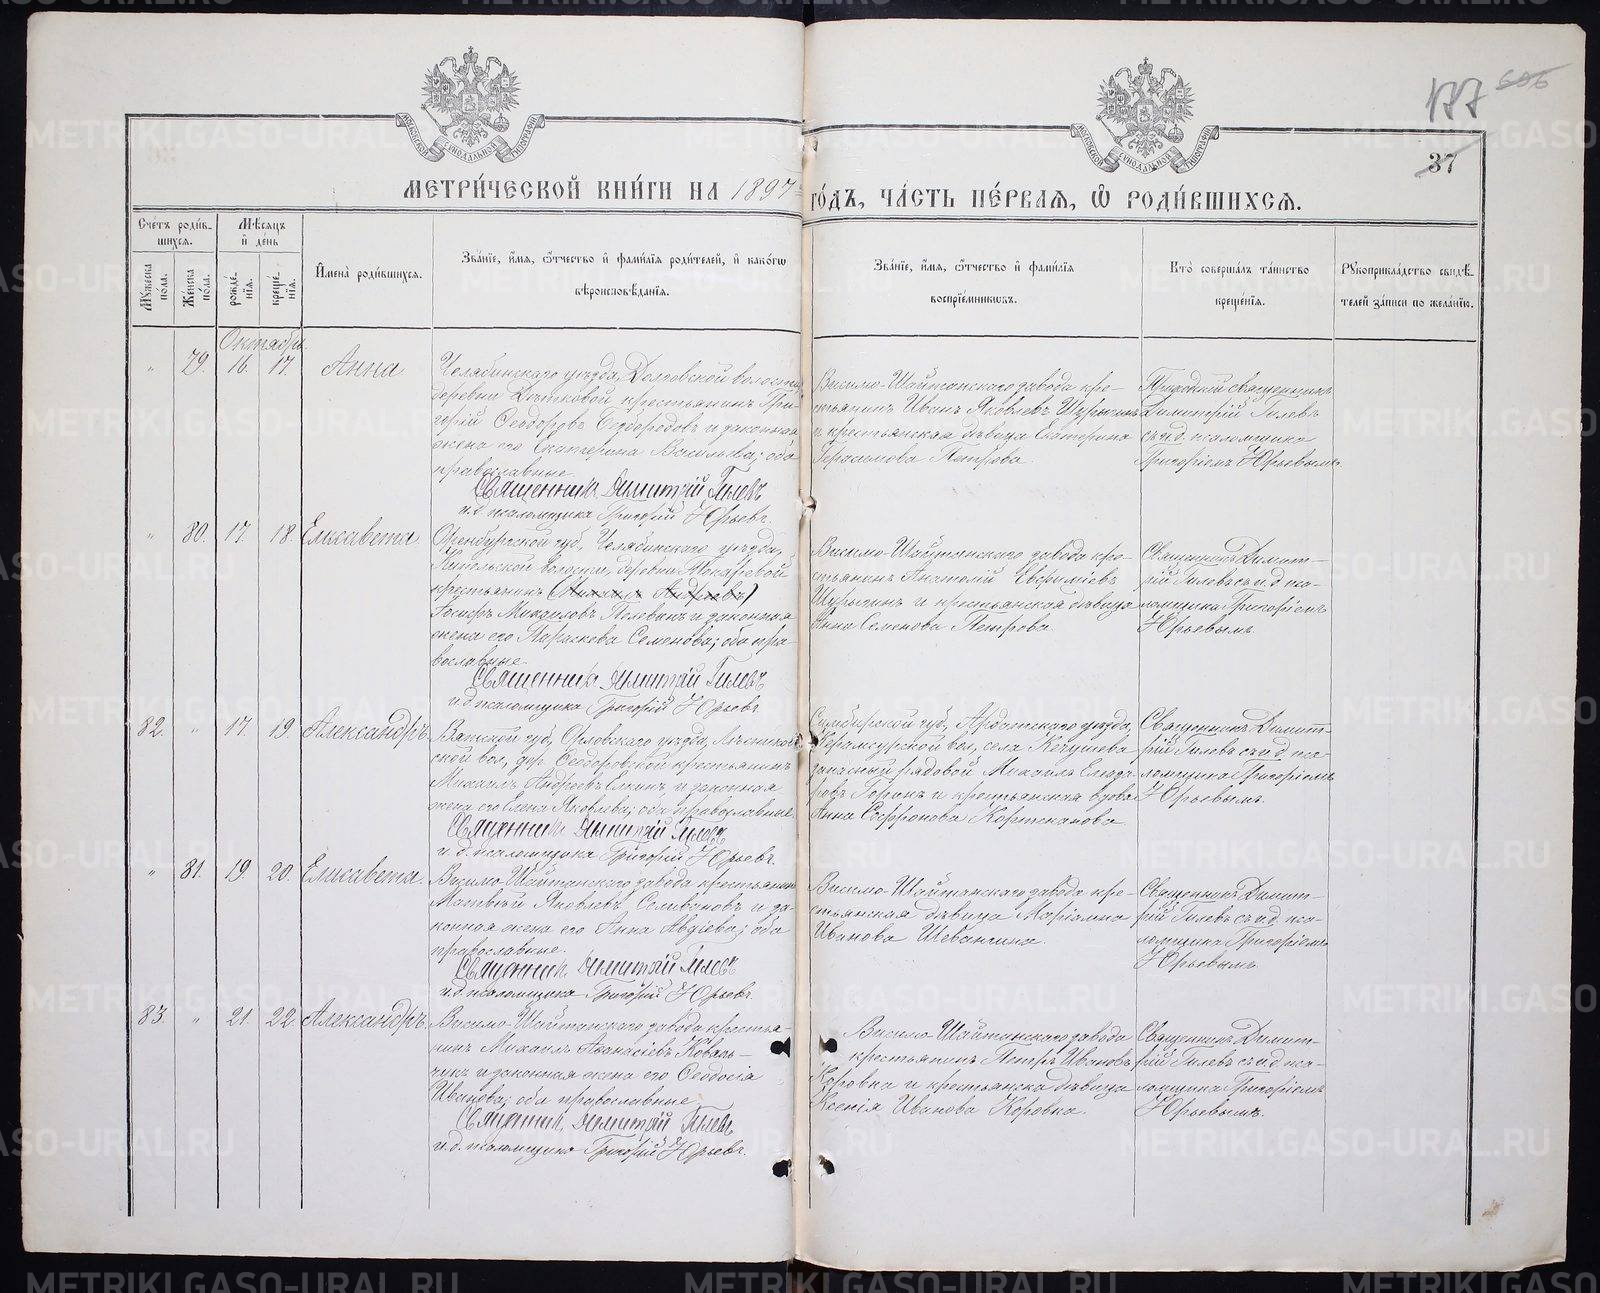 177 606
37
МЕТРИ́ЧЕСКОЙ КНИ́ГИ НА 1897 ГО́ДЪ, ЧА́СТЬ ПЕ́РВАЯ, Ѽ РОДИ́ВШИХСЯ.
Сче́тъ роди́в-
шихся.
Мѣ́сяцъ
и҆ де́нь
Мꙋ́жеска по́ла.
Же́нска по́ла.
рожде́-
нїѧ.
креще́-
нїѧ.
И҆мена̀ роди́вшихся.
Зва́нїе, и҆́мѧ, ѻ҆́тчество и҆ фами́лїѧ роди́телей, и҆ како́гѡ
вѣроисповѣ́данїѧ.
Зва́нїе, и҆́мѧ, ѻ҆́тчество и҆ фами́лїѧ
воспрїе́мникѡвъ.
Кто̀ соверша́лъ та́инство
креще́нїѧ.
Рꙋкоприкла́дство свидѣ́-
телей за́писи по жела́нїю.
Октябрь
" 79. 16. 17. Анна
Челябинскаго уѣзда, Долговской волости
деревни крестьянинъ Гри-
горій Ѳеодоровъ и законная
жена его Екатерина Васильева; оба
православные.
Священникъ Димитрій Гилевъ
и.д. псаломщика Григорій Юрьевъ.
Висимо-Шайтанскаго завода кре-
стьянинъ Иванъ Яковлевъ
и крестьянская дѣвица Екатерина
Герасимова Петрова.
Приходскій священникъ
Димитрій Гилевъ
съ и.д. псаломщика
Григоріемъ Юрьевымъ.
" 80. 17. 18. Елисавета
Оренбургской губ., Челябинскаго уѣзда,
волости, деревни Макаровой
крестьянинъ
Михаиловъ и законная
жена его Параскева Семенова; оба пра-
вославные.
Священникъ Димитрій Гилевъ
и.д. псаломщика Григорій Юрьевъ.
Висимо-Шайтанскаго завода кре-
стьянинъ Анатолій Евфиміевъ
и крестьянская дѣвица
Анна Семенова Петрова.
Священникъ Димит-
рій Гилевъ съ и.д. пса-
ломщика Григоріемъ
Юрьевымъ.
82. " 17. 19. Александръ
Вятской губ., Орловскаго уѣзда,
ской вол., дер. Ѳеодоровской крестьянинъ
Михаилъ Андреевъ и законная
жена его Елена Яковлева; оба православные.
Священникъ Димитрій Гилевъ
и.д. псаломщика Григорій Юрьевъ.
Симбирской губ., Ардатскаго уѣзда,
вол., села
запасный рядовой Михаилъ
и крестьянская вдова
Анна Софронова
Священникъ Димит-
рій Гилевъ съ и.д. пса-
ломщика Григоріемъ
Юрьевымъ.
" 81. 19. 20. Елисавета.
Висимо-Шайтанскаго завода крестьянинъ
Матвѣй Яковлевъ Селивановъ и за-
конная жена его Анна Авдіева; оба
православные.
Священникъ Димитрій Гилевъ
и.д. псаломщика Григорій Юрьевъ.
Висимо-Шайтанскаго завода кре-
стьянская дѣвица Маріамна
Иванова
Священникъ Димит-
рій Гилевъ съ и.д. пса-
ломщика Григоріемъ
Юрьевымъ.
83. " 21. 22. Александръ
Висимо-Шайтанскаго завода крестья-
нинъ Михаилъ Аѳанасіевъ Коваль-
чукъ и законная жена его Ѳеодосія
Иванова; оба православные.
Священникъ Димитрій Гилевъ
и.д. псаломщика Григорій Юрьевъ.
Висимо-Шайтанскаго завода
крестьянинъ Петръ Ивановъ
Коровка и крестьянска дѣвица
Ксенія Иванова Коровка.
Священникъ Димит-
рій Гилевъ съ и.д. пса-
ломщика Григоріемъ
Юрьевымъ.
METRIKI.GASO-URAL.RU